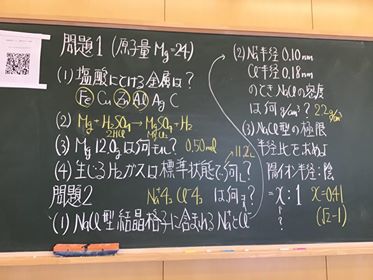 問題1 (原子量Mg=24)
(1) 塩酸にとける金属は?
Fe Cu Zn Al Ag C
(2) Mg+H₂SO₄→MgSO₄+H₂
2HCl MgCl₂
(3) Mg 12.0gは何モル? 0.50mol
(4) 生じるH₂ガスは標準状態で何L? 11.2L
問題2
(1) NaCl型結晶格子に含まれるNa⁺とCl⁻は何コ?
Na⁺4コ Cl⁻4コ
(2) Na⁺半径 0.10nm
Cl⁻半径 0.18nm
のときNaClの密度
は何g/cm³? 2.2g/cm³
(3) NaCl型の極限
半径比を求めよ
陽イオン半径:陰
= x : 1 x=0.41
? (√2-1)